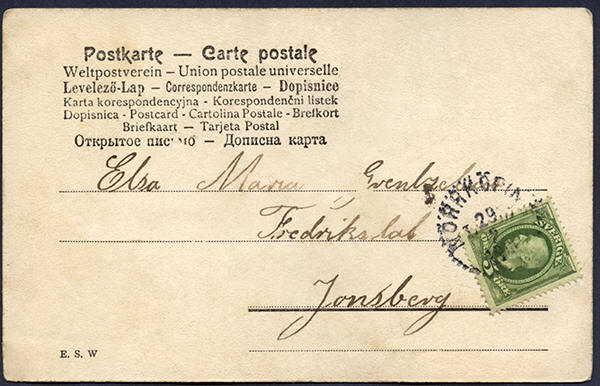 Postkarte — Carte postale
Weltpostverein – Union postale universelle
Levelező-Lap – Correspondenzkarte – Dopisnice
Karta korespondencyjna - Korespondenčni listek
Dopisnica - Postcard - Cartolina Postale - Brefkort
Briefkaart – Tarjeta Postal
Открытое письмо – Дописна карта
Elsa Maria
Fredrikslat
Jonsberg
NORRKÖPING
29
SVERIGE
E. S. W